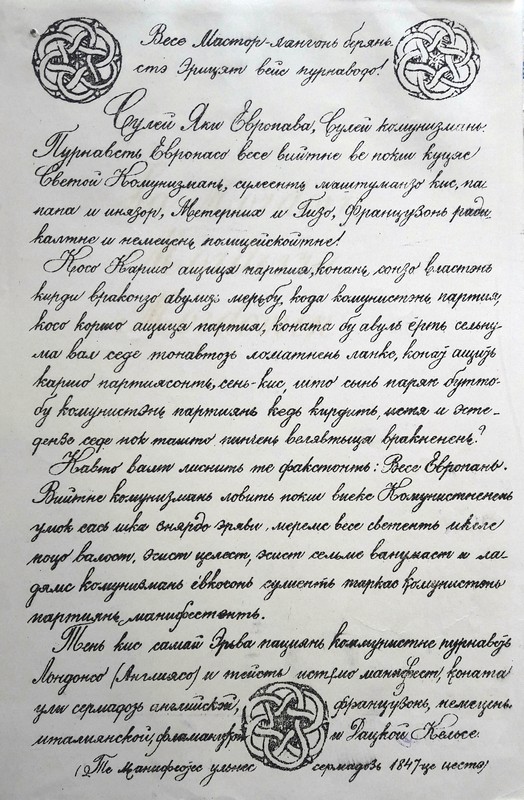 Весе Мастор-лангонь берянь.
стэ Эрицят вейс пурнаводо!
Сулей Яки Европава, Сулей комунизмань.
Пурнавсть Европасо весе вийтне ве покш куцяс
Светой Комунизмань, сулеенть маштуманзо кис, па
папа и инязор, Метерних и Гизо, Французонь ради
калтне и немецень полицейскойтне!
Косо Каршо ащиця партия, конань сонзо властэнь
кирди враконзо авулизь мерьбу, кода комунистэнь партия,
косо коршо ащиця партия, коната бу авуль ёртъ сельну-
ма вал седе тонавтозь ломатнень ланкс, конат ащизь
каршо партиясонть, сень-кис, што сынь паряк бутто-
бу комунистэнь партиянь кедь кирдить, истя и эсте-
дензе седе пок ташто пинчень велявтыця вракненень?
Кавто валт лиснить те факстонть: Весе Европань.
Вийтне комунизмань ловить покш виекс Комунистненень
умок сась шка знярдо эряви, меремс весе светенть икеле
поцо валост, эсист целест, эсист сельме вануваст и ла-
дямс комунизмань ёвкосонь сулеенть таркас комунистэнь
партиянь манифестэнть.
Тень кис самай Эрьва нациянь коммунистне пурнавсь
Лондонсо (Англиясо) и тейсть истямо манифест, коната
ули сермадозь английскэй, французонь, немецень.
италиянской, фламан и Дацкой Кельсе.
(Те Манифесэсь ульнес сермадозь 1847-це иестэ)